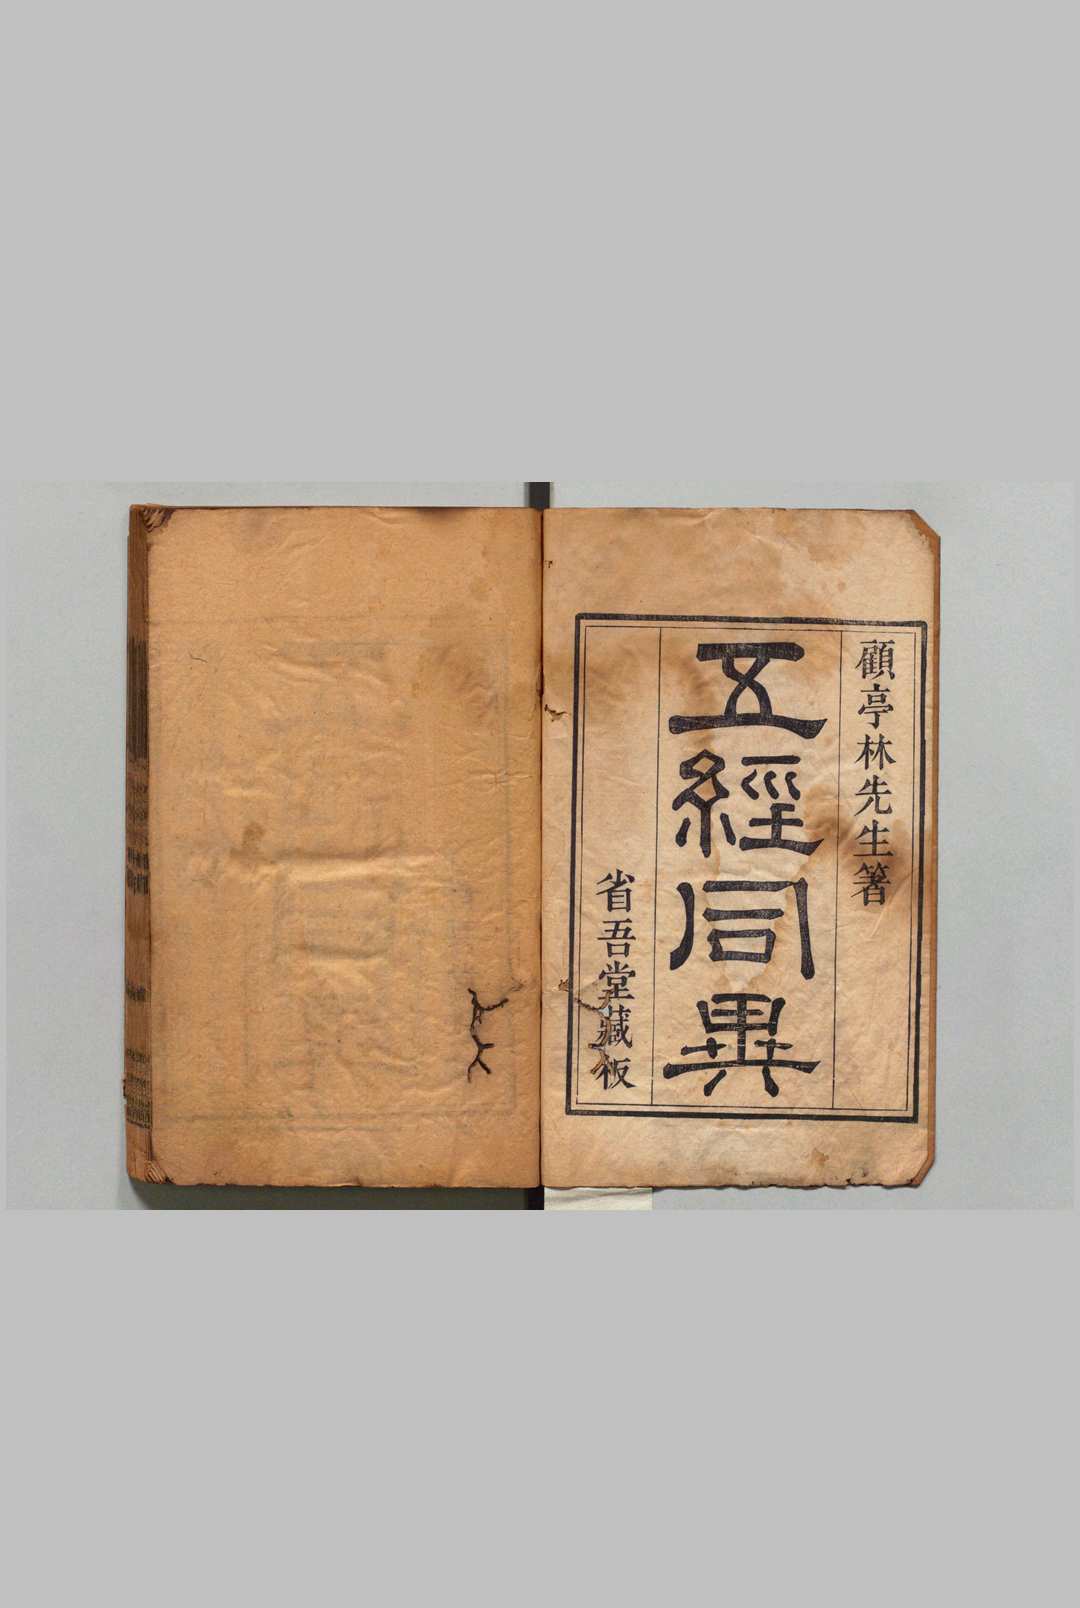 顧亭林先生箸
五經同異
省吾堂藏板